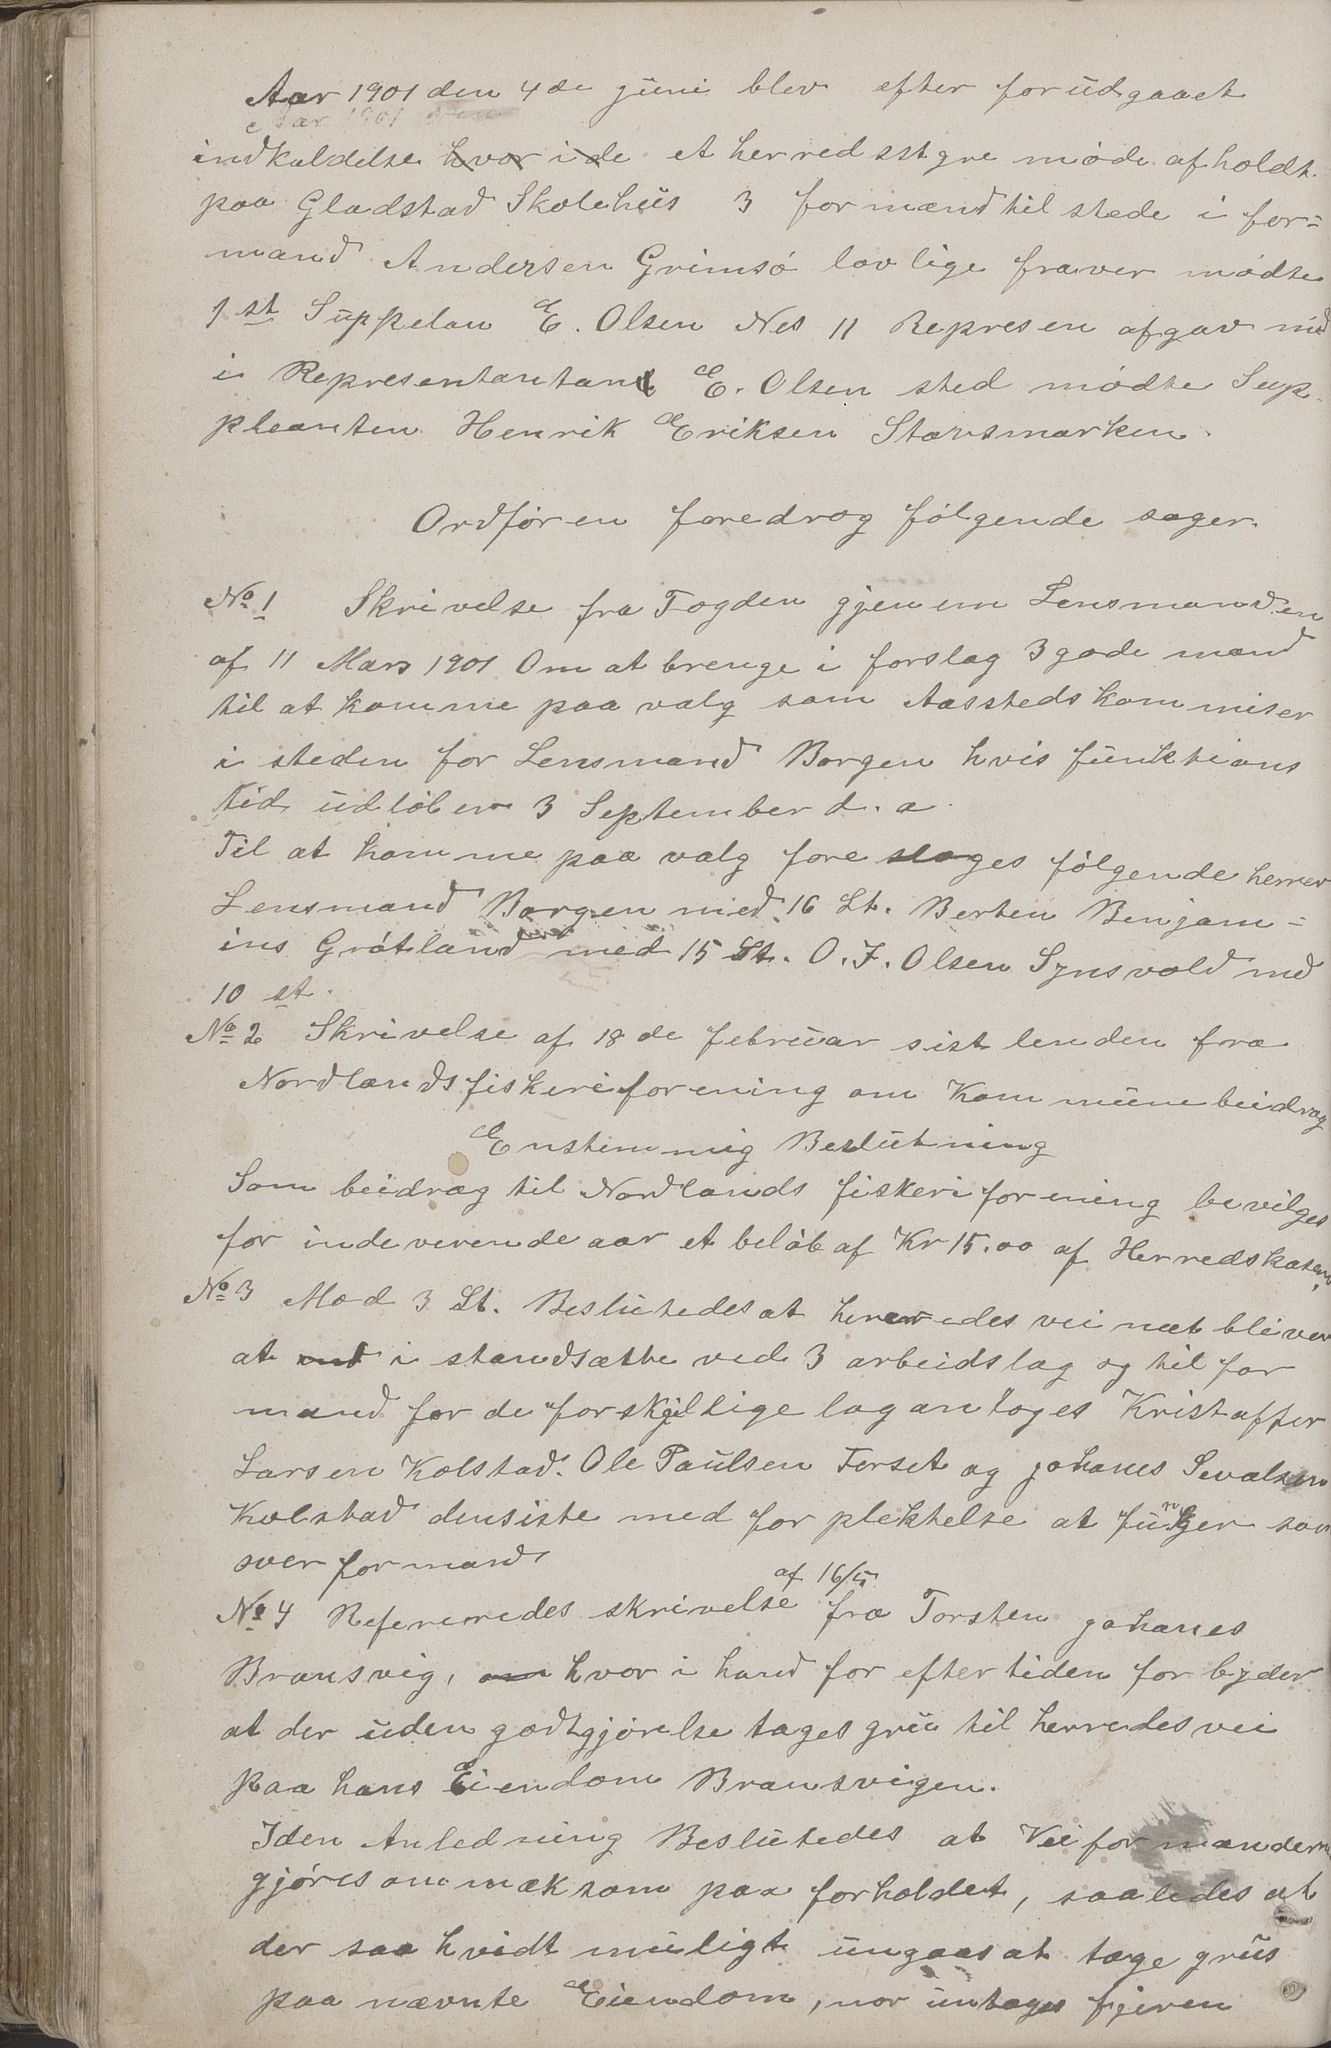 Aar 1901 den 4de juni blev efter forudgaaet
Aar 1901
indkaldelse hvor i de et herredsstyre møde afholdt
paa Gladstad Skolehus 3 formænd tilstede i for=
mand Andersen Grimsø lovlige fraver mødte
1st Suppelan E. Olsen Nes 11 Represen afgav mød
i Representantant E. Olsen sted mødte Sup-
pleanten Henrik Eriksen Stavsmarken.
Ordføren foredrog følgende sager.
No 1 Skrivelse fra Fogden gjenem Lensmanden
af 11 Mars 1901 Om at brenge i forslag 3 gode mænd
til at komme paa valg som Aasstedskommiser
i steden for Lensmand Borgen hvis funktions
tid udløber 3 September d. a
Til at komme paa valg fore slages følgende herrer
Lensmand Borgen med 16 St. Berten Benjam=
ins Grøtland med 15 St. O. J. Olsen Synsvold med
10 st.
No 2 Skrivelse af 18de februar sistlenden fra
Nordlands fiskeriforening om Kommune beidrag
Enstemmig Beslutning
Som beidrag til Nordlands fiskeriforening bevilges
for indeverende aar et beløb af Kr 15.00 af Herredskaten,
No 3 Mod 3 St. Beslutedes at herredes veinæt bliver
at i standsætte ved 3 arbeidslag og til for
mand for de forskjellige lag antoges Kristoffer
Larsen Kolstad. Ole Paulsen Forset og johanes Sevalsen
Kolstad densiste med for plektelse at funger som
over formand
af 16/5
No 4 Refereredes skrivelse fra Torsten johanes
Bransvig, om hvor i hand for eftertiden for byder
at der uden godtgjørelse tages grus til herredesvei
paa hans Eiendom Bransvigen.
I den Anledning Beslutedes at Veiformændern
gjøres ommæksom paa forholdet, saaledes at
der saa hvidt muligt ungaas at tage grus
paa nævnte Eiendom, nor untages fjeren